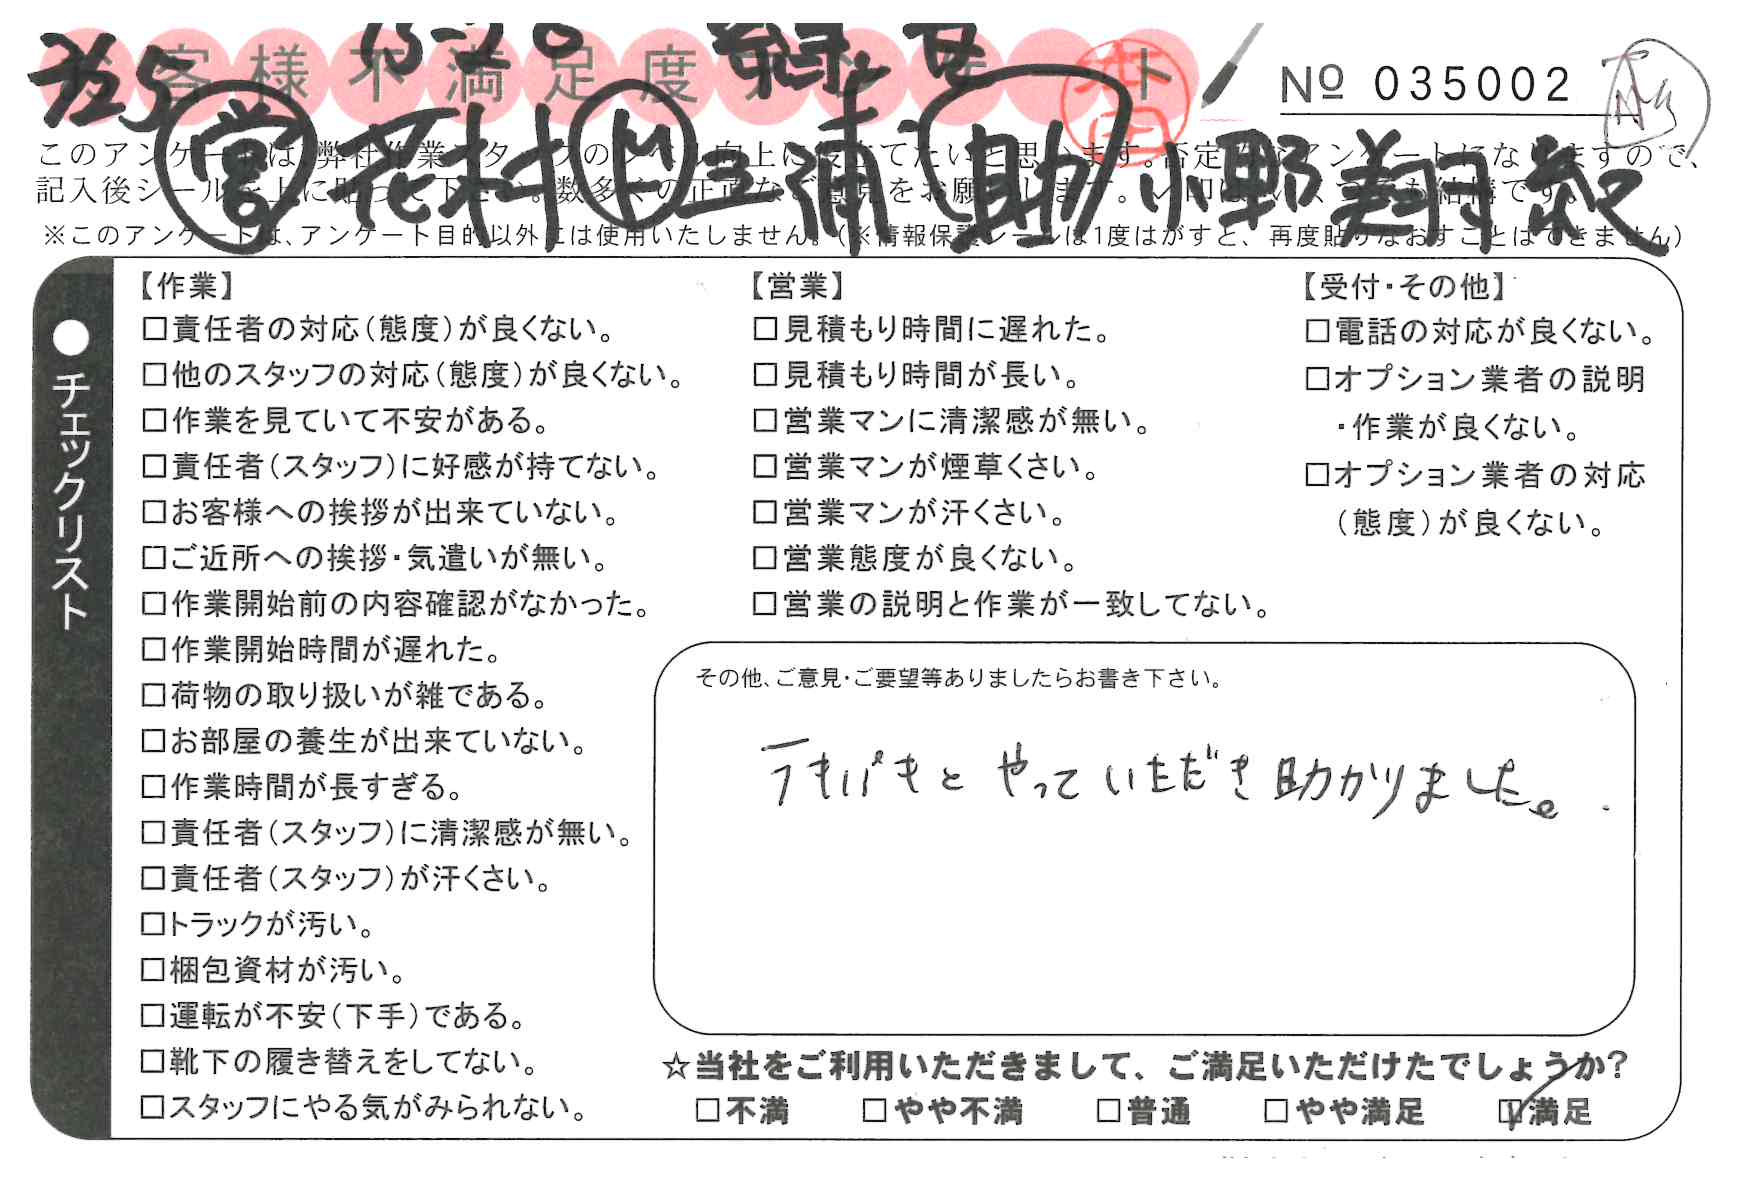 お客様不満足度アンケート
№ 035002
7/25
営 花村 M 三浦 助 小野翔哉
このアンケートは、弊社作業スタッフのレベル向上に役立てたいと思います。否定的なアンケートになりますので、
記入後シールを上に貼って下さい。数多くの正直なご意見をお願いします。レ印はいくつでも結構です。
※このアンケートは、アンケート目的以外には使用いたしません。（※情報保護シールは1度はがすと、再度貼りなおすことはできません）
●チェックリスト
【作業】
□責任者の対応（態度）が良くない。
□他のスタッフの対応（態度）が良くない。
□作業を見ていて不安がある。
□責任者（スタッフ）に好感が持てない。
□お客様への挨拶が出来ていない。
□ご近所への挨拶・気遣いが無い。
□作業開始前の内容確認がなかった。
□作業開始時間が遅れた。
□荷物の取り扱いが雑である。
□お部屋の養生が出来ていない。
□作業時間が長すぎる。
□責任者（スタッフ）に清潔感が無い。
□責任者（スタッフ）が汗くさい。
□トラックが汚い。
□梱包資材が汚い。
□運転が不安（下手）である。
□靴下の履き替えをしてない。
□スタッフにやる気がみられない。
【営業】
□見積もり時間に遅れた。
□見積もり時間が長い。
□営業マンに清潔感が無い。
□営業マンが煙草くさい。
□営業マンが汗くさい。
□営業態度が良くない。
□営業の説明と作業が一致してない。
【受付・その他】
□電話の対応が良くない。
□オプション業者の説明
・作業が良くない。
□オプション業者の対応
（態度）が良くない。
その他、ご意見・ご要望等ありましたらお書き下さい。
テキパキとやっていただき助かりました。
☆当社をご利用いただきまして、ご満足いただけたでしょうか?
□不満 □やや不満 □普通 □やや満足 ☑満足